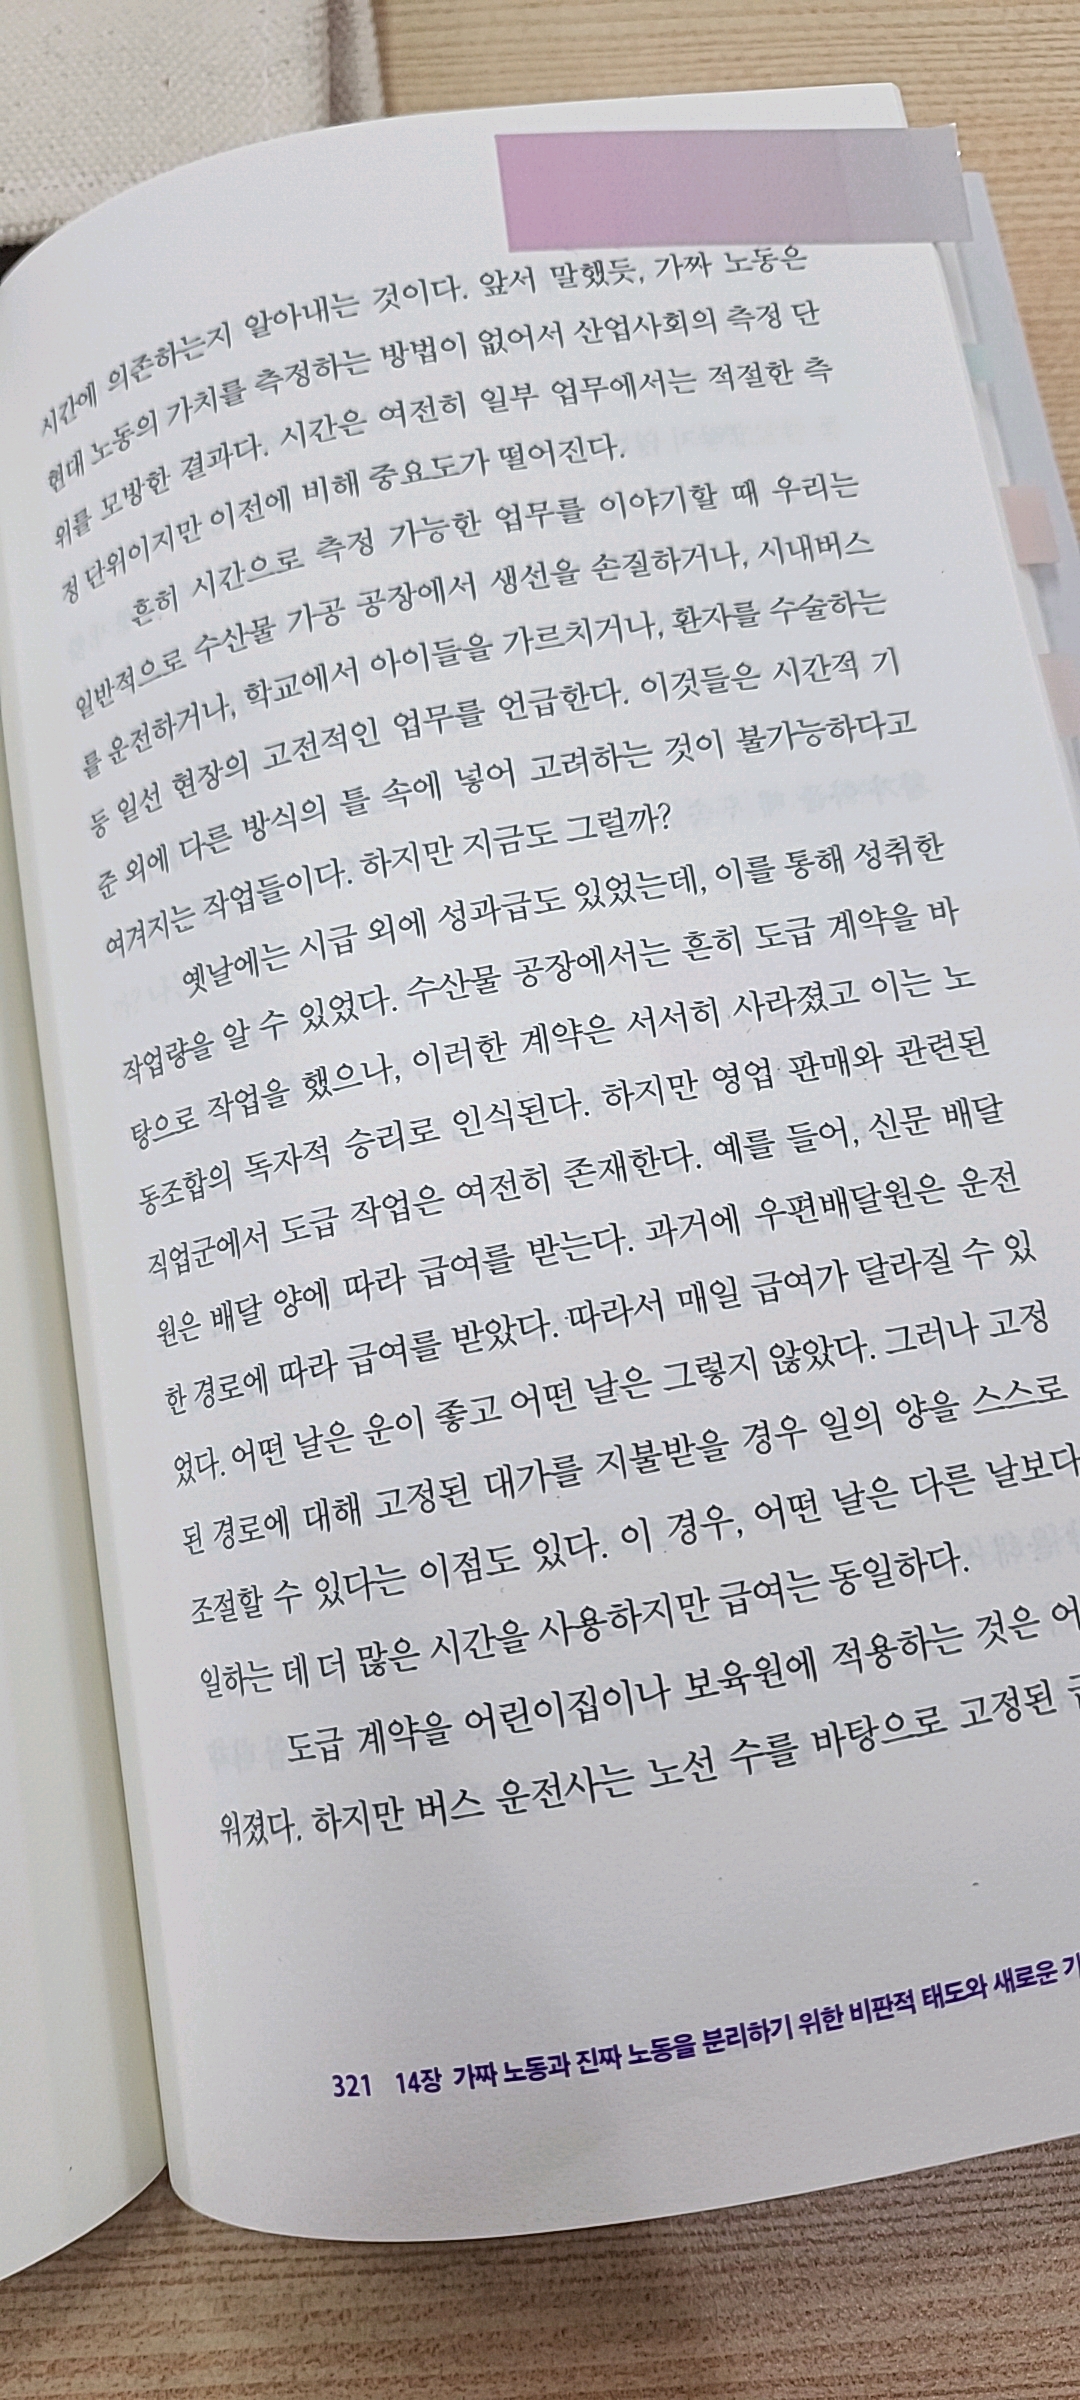 시간에 의존하는지 알아내는 것이다. 앞서 말했듯, 가짜 노동은
현대 노동의 가치를 측정하는 방법이 없어서 산업사회의 측정 단
위를 모방한 결과다. 시간은 여전히 일부 업무에서는 적절한 측
정 단위이지만 이전에 비해 중요도가 떨어진다.
흔히 시간으로 측정 가능한 업무를 이야기할 때 우리는
일반적으로 수산물 가공 공장에서 생선을 손질하거나, 시내버스
를 운전하거나, 학교에서 아이들을 가르치거나, 환자를 수술하는
등 일선 현장의 고전적인 업무를 언급한다. 이것들은 시간적 기
준 외에 다른 방식의 틀 속에 넣어 고려하는 것이 불가능하다고
여겨지는 작업들이다. 하지만 지금도 그럴까?
옛날에는 시급 외에 성과급도 있었는데, 이를 통해 성취한
작업량을 알 수 있었다. 수산물 공장에서는 흔히 도급 계약을 바
탕으로 작업을 했으나, 이러한 계약은 서서히 사라졌고 이는 노
동조합의 독자적 승리로 인식된다. 하지만 영업 판매와 관련된
직업군에서 도급 작업은 여전히 존재한다. 예를 들어, 신문 배달
원은 배달 양에 따라 급여를 받는다. 과거에 우편배달원은 운전
한 경로에 따라 급여를 받았다. 따라서 매일 급여가 달라질 수 있
었다. 어떤 날은 운이 좋고 어떤 날은 그렇지 않았다. 그러나 고정
된 경로에 대해 고정된 대가를 지불받을 경우 일의 양을 스스로
조절할 수 있다는 이점도 있다. 이 경우, 어떤 날은 다른 날보다
일하는 데 더 많은 시간을 사용하지만 급여는 동일하다.
도급 계약을 어린이집이나 보육원에 적용하는 것은 어
워졌다. 하지만 버스 운전사는 노선 수를 바탕으로 고정된
321 14장 가짜 노동과 진짜 노동을 분리하기 위한 비판적 태도와 새로운